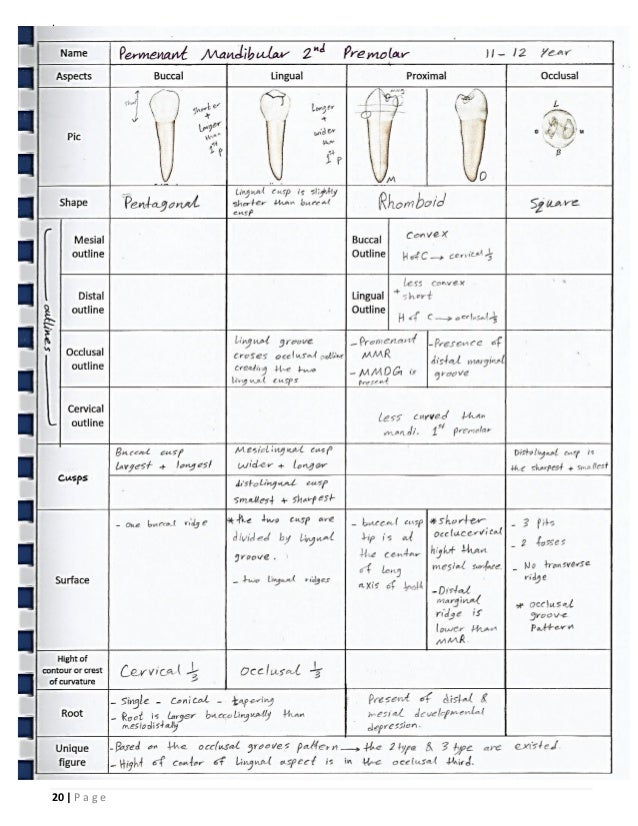 Name Permenant Mandibular 2nd Premolar 11 - 12 Year
Aspects Buccal Lingual Proximal Occlusal
Pic
Shorter
+
Larger
than
1st P
Longer
+
wider
than
1st P
M
D
L
B
Shape
Pentagonal
Lingual cusp is slightly
shorter than buccal
cusp
Rhomboid
Square
outlines
Mesial
outline
Buccal
Outline
Convex
H of C → cervical ⅓
Distal
outline
Lingual
Outline
less convex
+ short
H of C → occlusal ⅓
Occlusal
outline
Lingual groove
croses occlusal outline
creating the two
lingual cusps
- Promenant
MMR
- MMDG is
present
- Presence of
distal marginal
groove
Cervical
outline
Less curved than
mandi. 1st premolar
Cusps
Buccal cusp
largest + longest
Mesiolingual cusp
wider + longer
distolingual cusp
smallest + sharpest
Distolingual cusp is
the sharpest + smallest
Surface
- One buccal ridge
* the two cusp are
divided by lingual
groove.
- two lingual ridges
- buccal cusp
tip is at
the center
of long
axis of tooth
* shorter
occlucervical
hight than
mesial surface.
- Distal
marginal
ridge is
lower than
MMR.
- 3 pits
- 2 fosses
- No transverse
ridge
* occlusal
groove
Pattern
Hight of
contour or crest
of curvature
Cervical ⅓
Occlusal ⅓
Root
- Single - Conical - tapering
- Root is larger buccolingually than
mesiodistally
Present of distal &
mesial developmental
depression.
Unique
figure
- Based on the occlusal grooves pattern → the 2 type & 3 type are existed.
- Hight of contor of lingual aspect is in the occlusal third.
20 | Page